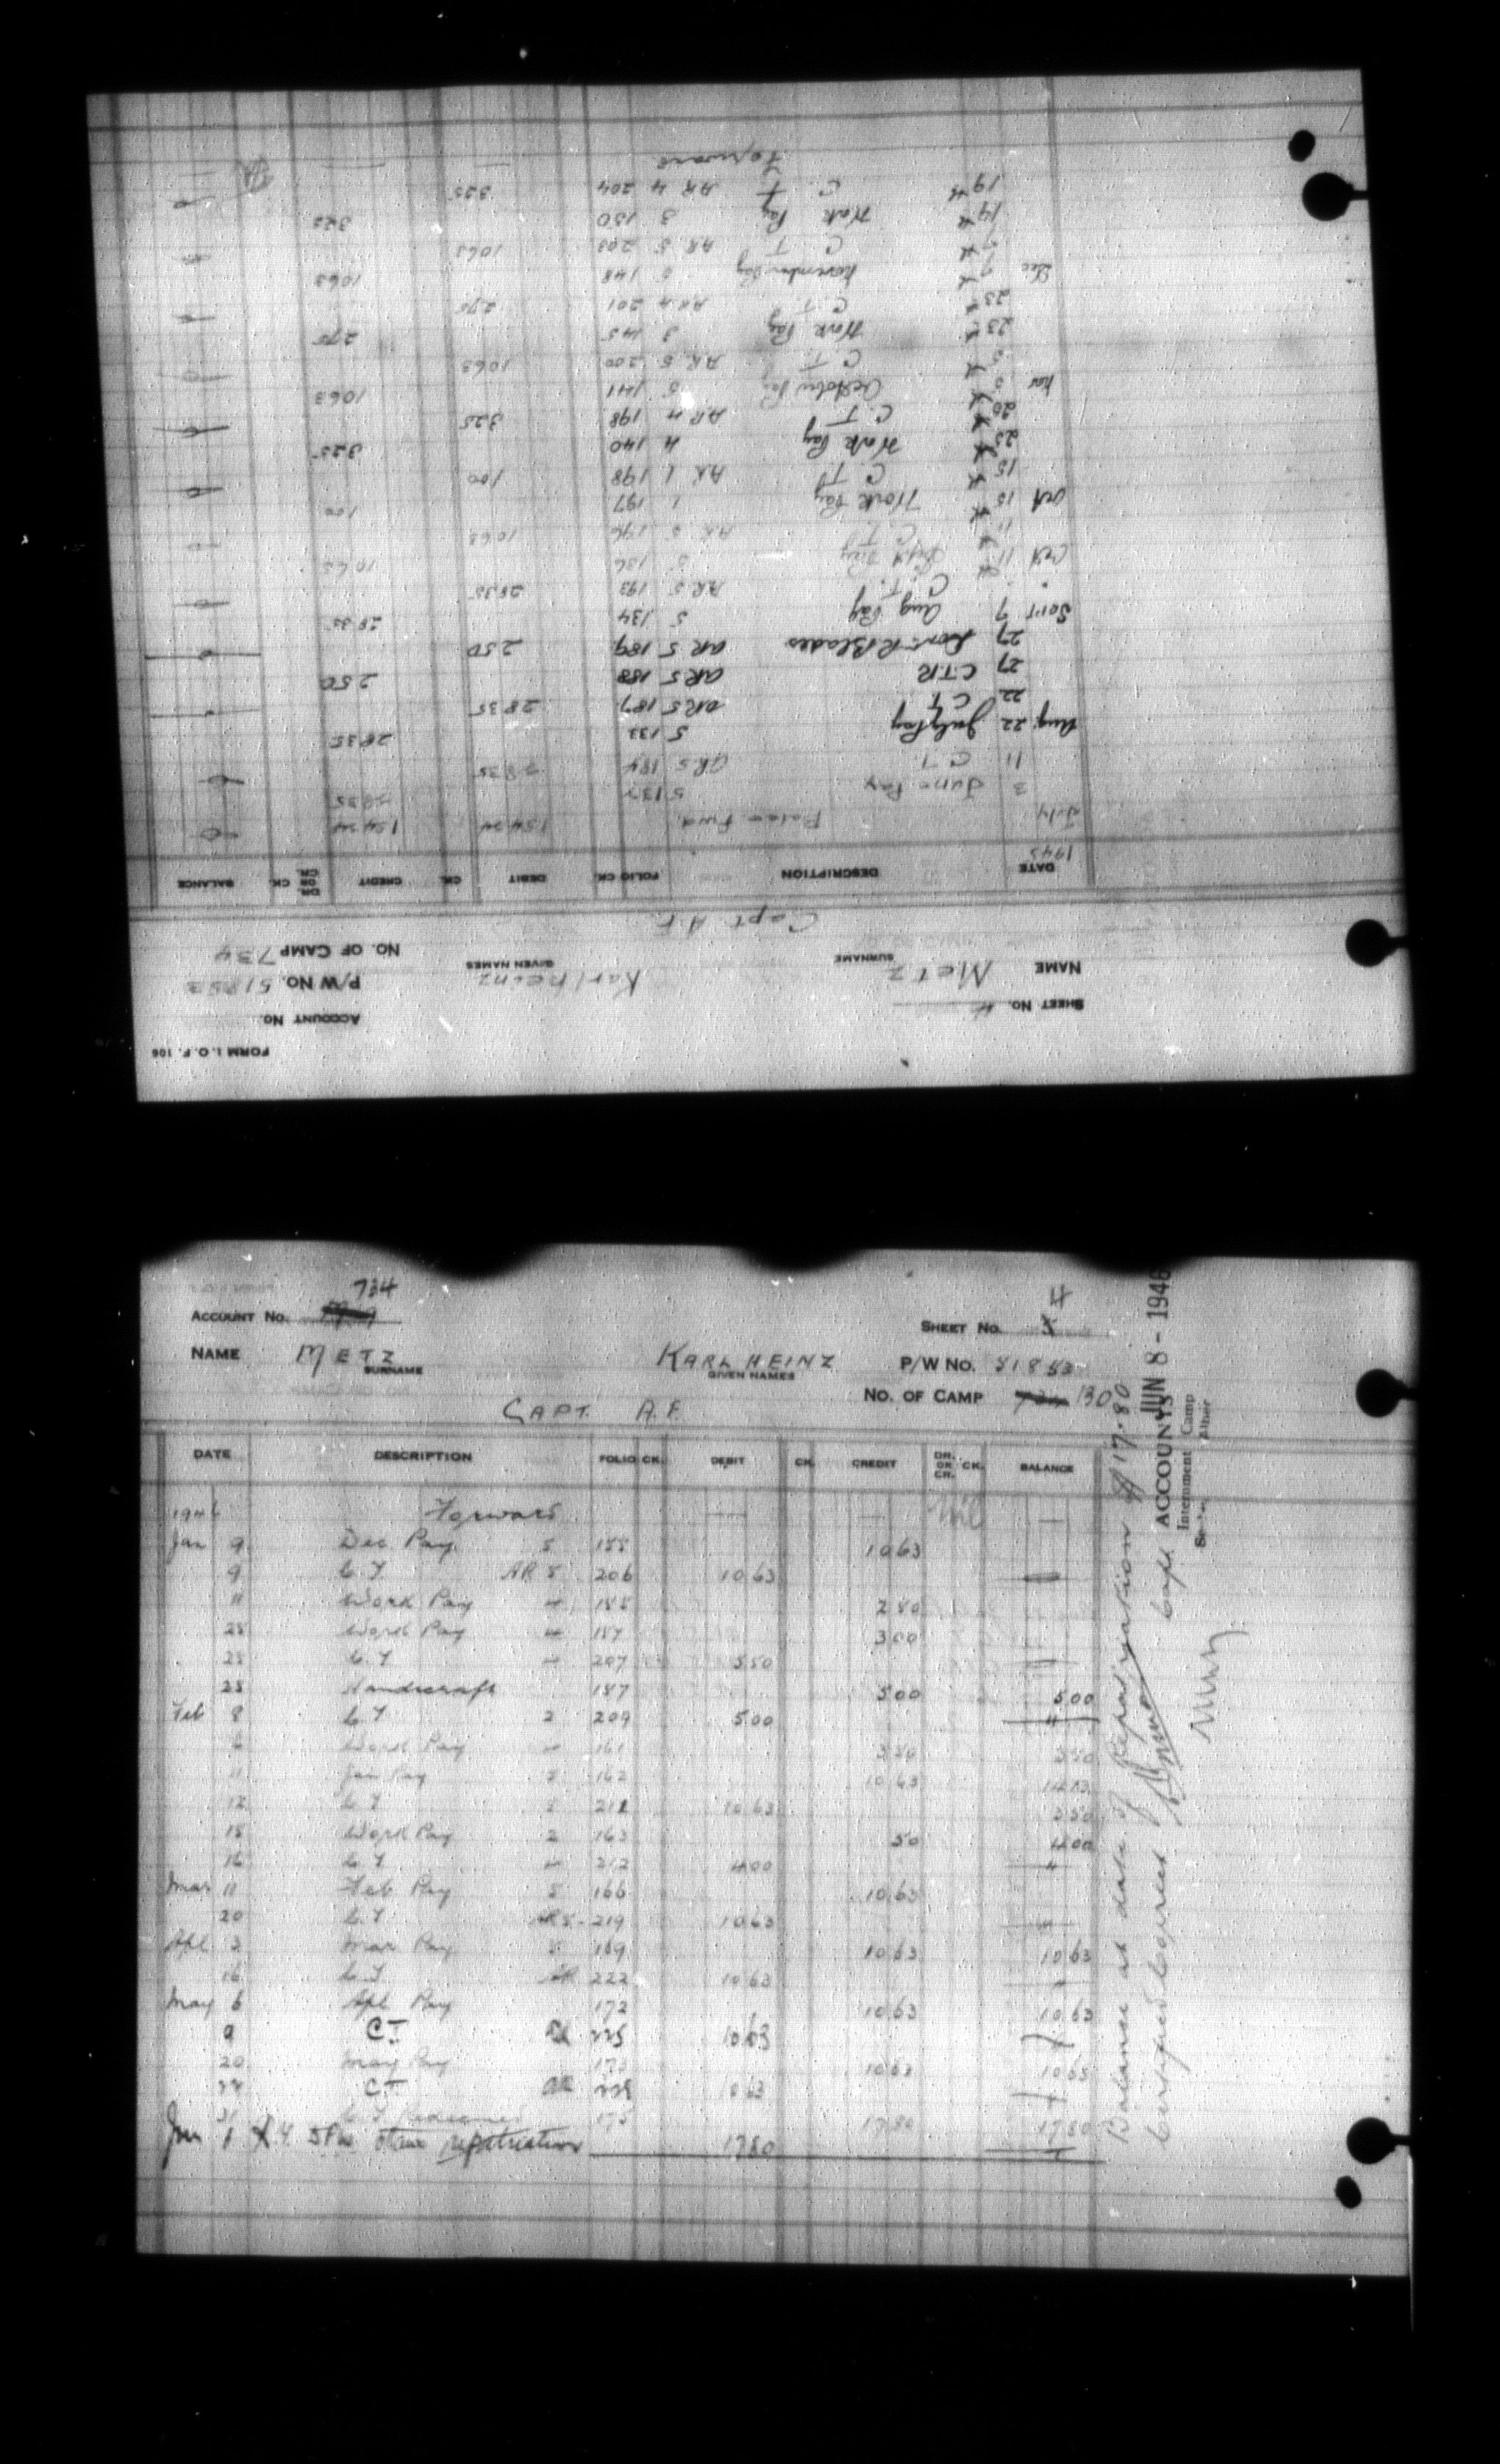 FORM I.O.F. 106
ACCOUNT NO.
SHEET NO.
P/W NO. 51853
NAME METZ Karlheinz
SURNAME GIVEN NAMES
NO. OF CAMP 734
Capt. A.F.
DATE DESCRIPTION FOLIO CK. DEBIT CK. CREDIT DR. OR CR. CK. BALANCE
1945
July Balance Fwd. 154 24 154 24
3 June Pay 5 28 35
11 C.T. AR5 184 28 35
Aug. 22 July Pay 5 133 28 35
22 C.T. AR5 187 28 35
27 C.T.R. AR5 188 2 50
27 R Blades AR5 189 2 50
Sept 7 Aug Pay 5 134 28 35
C.T. AR5 193 28 35
Oct 11 Sept Pay 5 136 10 63
11 C.T. AR 5 196 10 63
Oct 15 Work Pay 1 197 1 00
15 C.T. AR 1 198 1 00
Work Pay 4 140 3 25
20 C.T. AR 4 198 3 25
Nov 5 October Pay 5 141 10 63
5 C.T. AR 5 200 10 63
23 Work Pay 3 145 2 75
23 C.T. AR 4 201 2 75
Dec 7 November Pay 5 148 10 63
7 C.T. AR 5 203 10 63
19 Work Pay 3 150 3 25
19 C.T. AR 4 204 3 25
Forward
734
ACCOUNT NO.
4
SHEET NO.
NAME METZ KARL HEINZ P/W NO. 51853
SURNAME GIVEN NAMES
NO. OF CAMP 130
CAPT. A.F.
DATE DESCRIPTION FOLIO CK. DEBIT CK. CREDIT DR. OR CR. CK. BALANCE
1946 Forward Nil
Jan 9 Dec Pay 5 155 10 63
9 C.T. AR 5 206 10 63
11 Work Pay 4 155 2 50
25 Work Pay 4 157 3 00
25 C.T. 4 207 5 50
25 Handicraft 157 5 00 5 00
Feb 8 C.T. 2 209 5 00
Work Pay 4 161 3 50 3 50
11 Jan Pay 5 162 10 63 14 13
12 C.T. 5 211 10 63 3 50
15 Work Pay 2 163 50 4 00
16 C.T. 4 212 4 00
Mar 11 Feb Pay 5 166 10 63
20 C.T. AR 5 219 10 63
Apl 3 Mar Pay 5 169 10 63 10 63
16 C.T. AR 222 10 63
May 6 Apl Pay 172 10 63 10 63
9 C.T. AR 225 10 63
20 May Pay 173 10 63 10 63
C.T. AR 10 63
31 C.T. Redeemed 175 17 80 17 80
Jun 1 repatriation 17 80
Balance at date of Repatriation $17.80
Certified Correct Capt.
JUN 8 - 1946
ACCOUNTS
Internment Camp